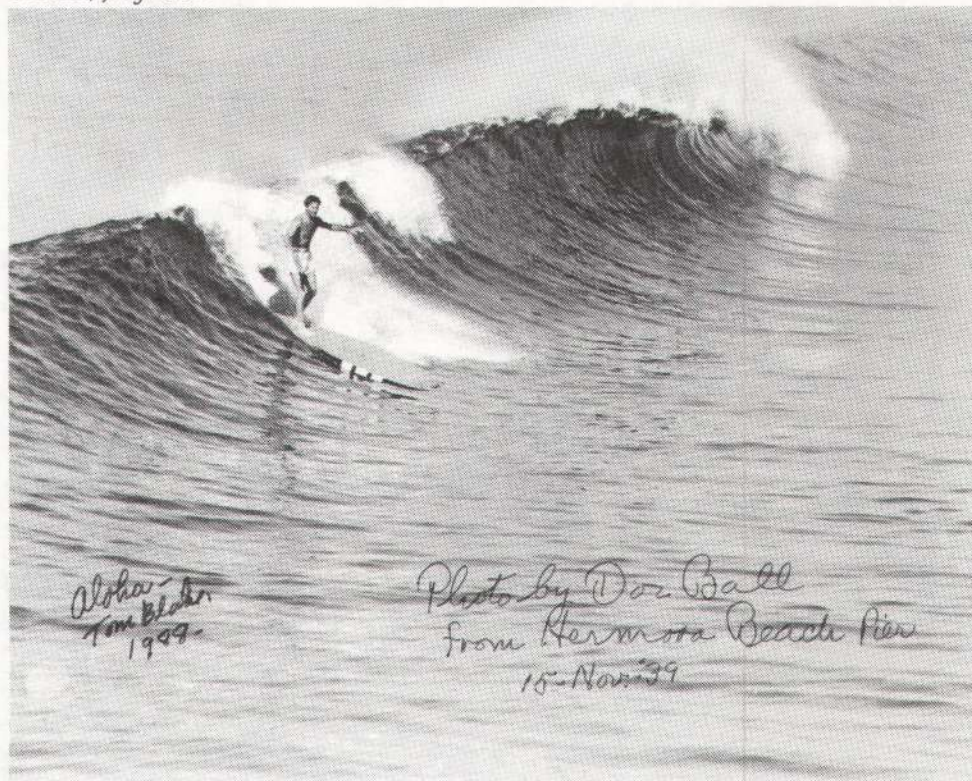 Aloha-
Tom Blake
Photo by Doc Ball
from Hermosa Beach Pier
15-Nov.'39